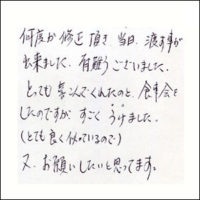 何度か修正頂き、当日、渡す事が
出来ました。有難うございました。
とっても喜んでくれたのと、食事会を
したのですが、すごくうけました。
(とても良く似ているので)
又、お願いしたいと思ってます。